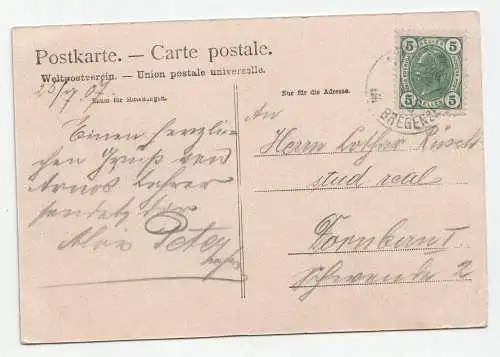 Postkarte. — Carte postale.
Weltpostverein. — Union postale universelle.
25/7 07.
Raum für Mitteilungen.
Nur für die Adresse.
5 HELLER 5
5 HELLER 5
BREGENZ
Einen herzli-
chen Gruß von
Lehrer
sendet dir
Alois
An
Herrn Lothar
stud real
Dornbirn I
2